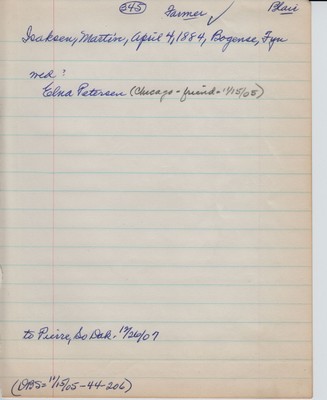 545 Farmer ✓ Blair
Isaksen, Martin, April 4, 1884, Bogense, Fyn
wed?
Elna Petersen (Chicago - friend - 11/15/05)
to Pierre, So Dak. 12/26/07
(DBS = 11/15/05 - 44 - 206)